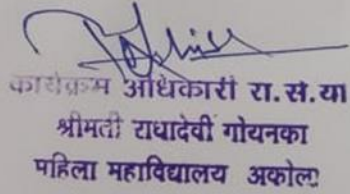 कार्यक्रम अधिकारी रा.से.यो
श्रीमती राधादेवी गोयनका
महिला महाविद्यालय अकोला